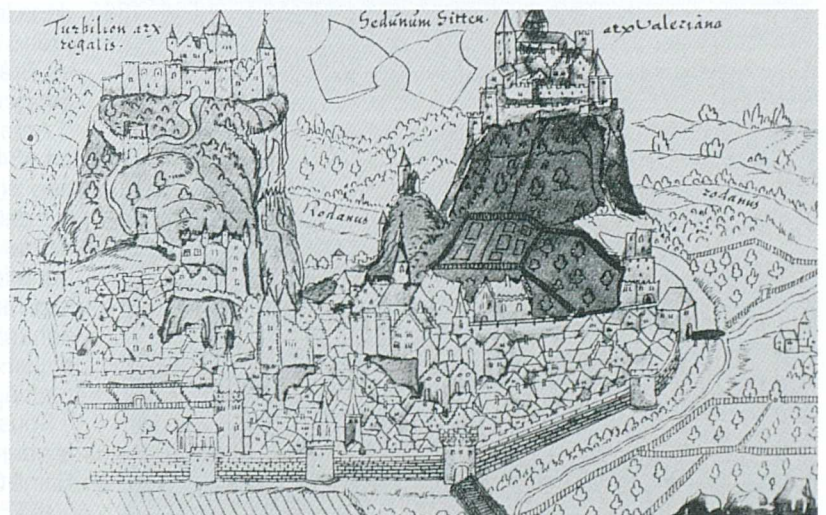 Turbilion arx
regalis.
Sedunum Sitten.
arx Valeriana
Rodanus
rodanus